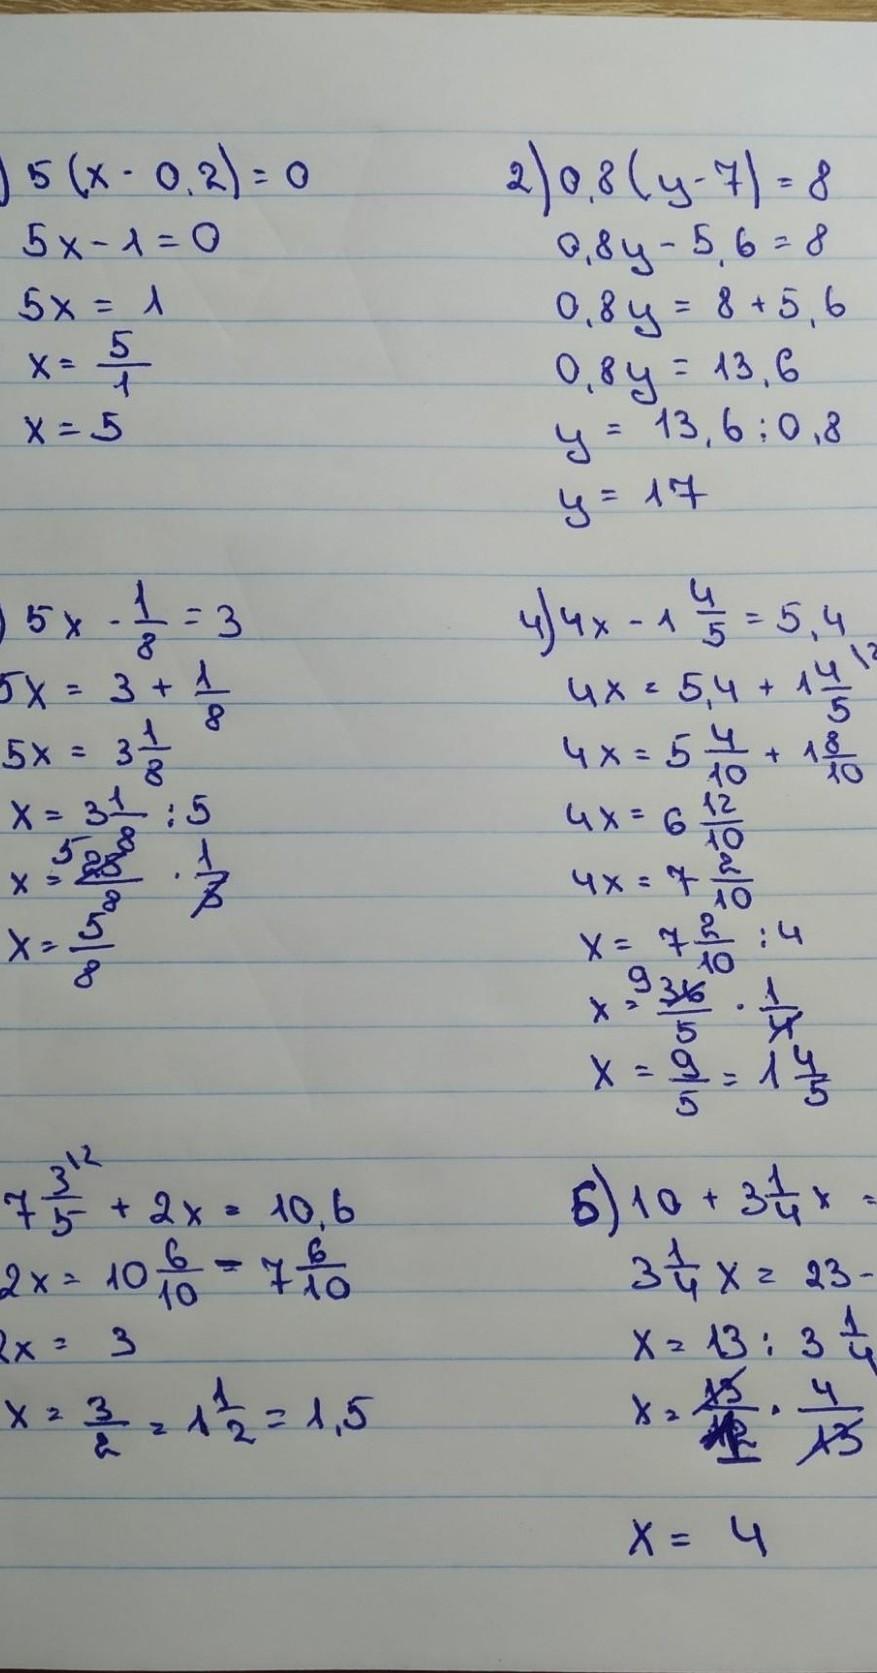 ) 5 (x - 0,2) = 0
5x - 1 = 0
5x = 1
x = 5/1
x = 5
2) 0,8 (y - 7) = 8
0,8y - 5,6 = 8
0,8y = 8 + 5,6
0,8y = 13,6
y = 13,6 : 0,8
y = 17
) 5x - 1/8 = 3
5x = 3 + 1/8
5x = 3 1/8
x = 3 1/8 : 5
x = 5 25/8 · 1/5
x = 5/8
4) 4x - 1 4/5 = 5,4
4x = 5,4 + 1 4/5 \2
4x = 5 4/10 + 1 8/10
4x = 6 12/10
4x = 7 2/10
x = 7 2/10 : 4
x = 9 36/5 · 1/4
x = 9/5 = 1 4/5
7 3/5 \2 + 2x = 10,6
2x = 10 6/10 - 7 6/10
2x = 3
x = 3/2 = 1 1/2 = 1,5
6) 10 + 3 1/4 x =
3 1/4 x = 23 -
x = 13 : 3 1/4
x = 13/1 · 4/13
x = 4